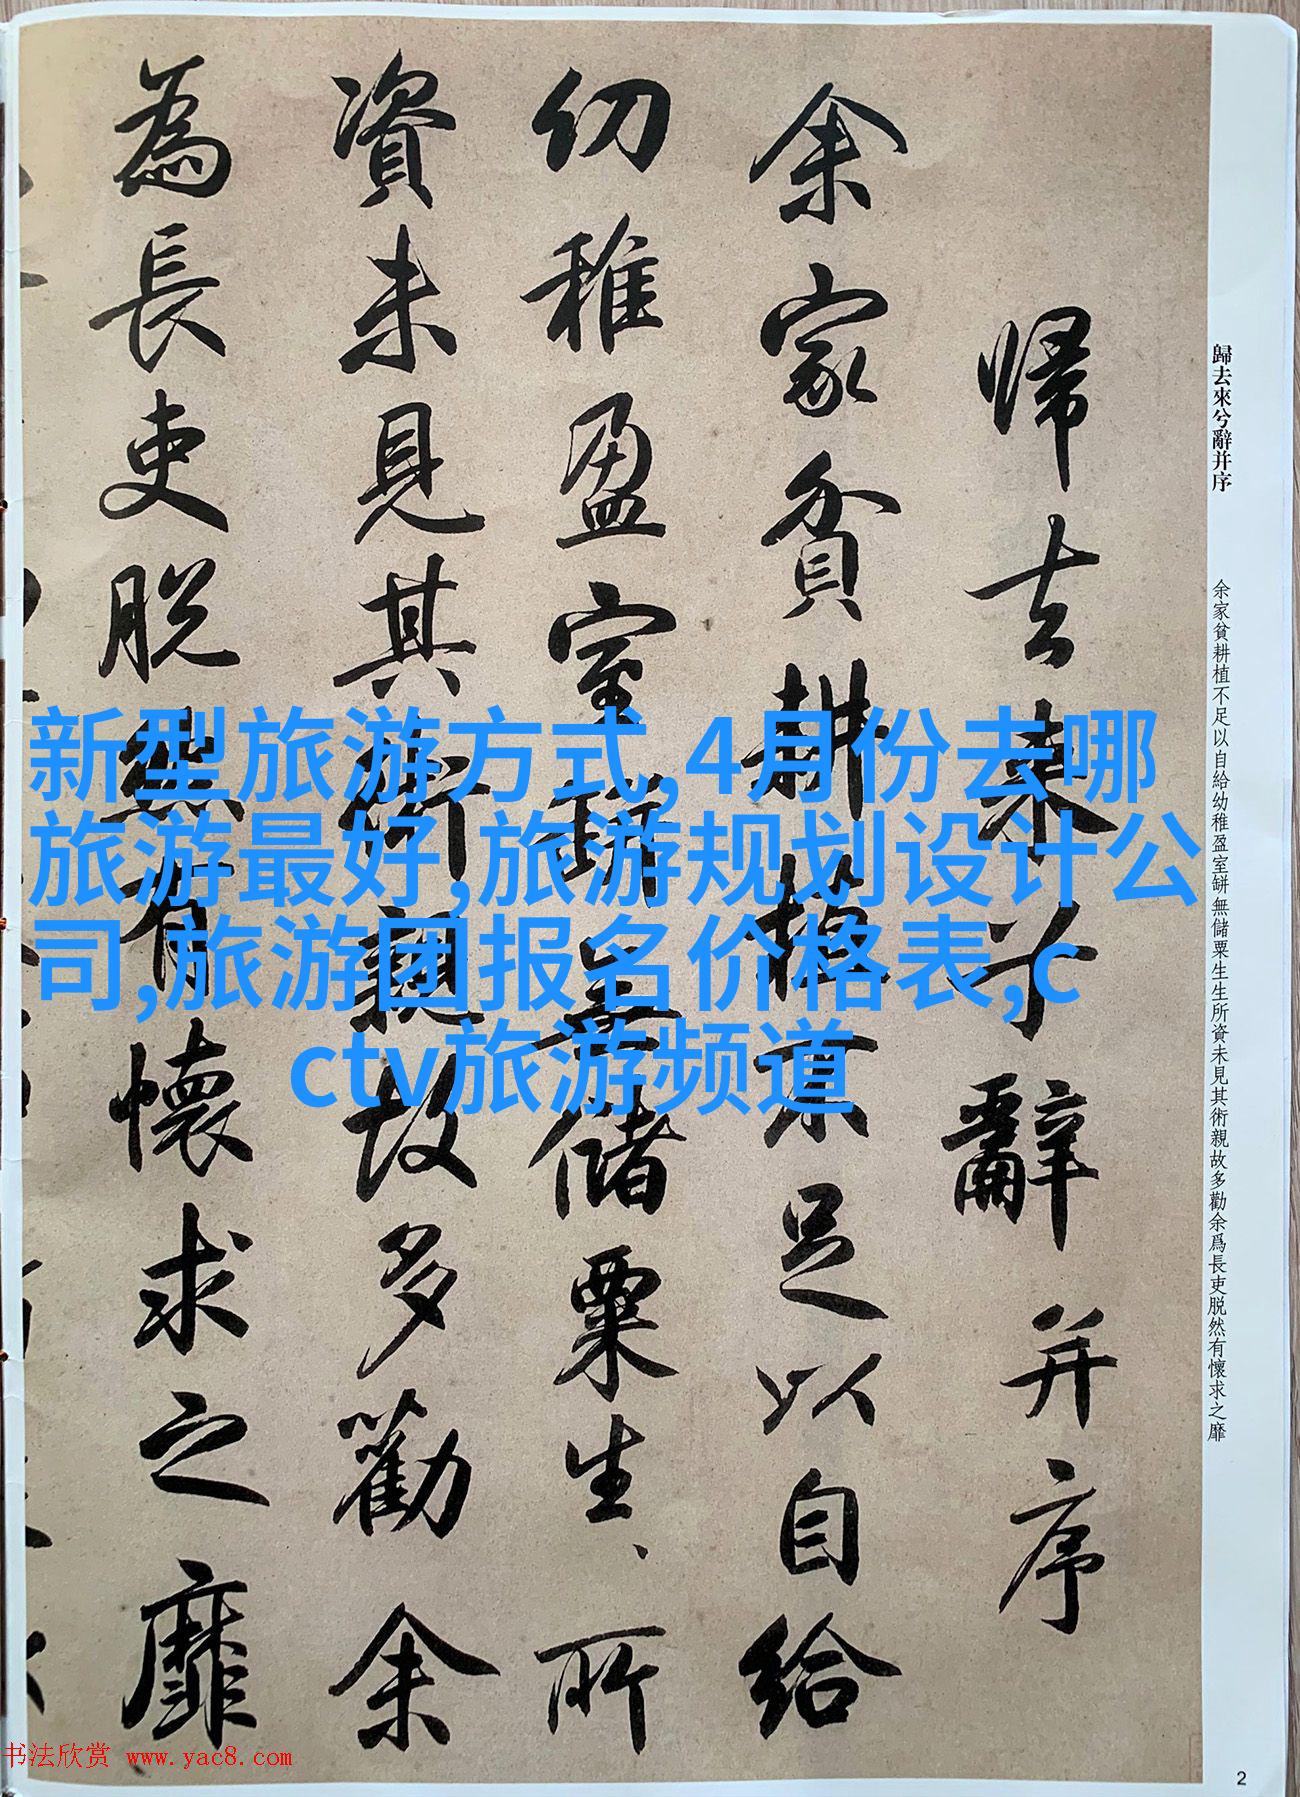 歸去來兮辭并序
余家貧耕植不足以自給幼稚盈室缾無儲粟生生所資未見其術親故多勸余爲長吏脱然有懷求之靡
歸去來兮辭并序
余家貧耕植不足以自給
幼稚盈室缾無儲粟生、所
資未見其術親故多勸余
為長吏脱然有懷求之靡
新型旅游方式,4月份去哪
旅游最好,旅游规划设计公
司,旅游团报名价格表,c
ctv旅游频道
书法欣赏 www.yac8.com
2